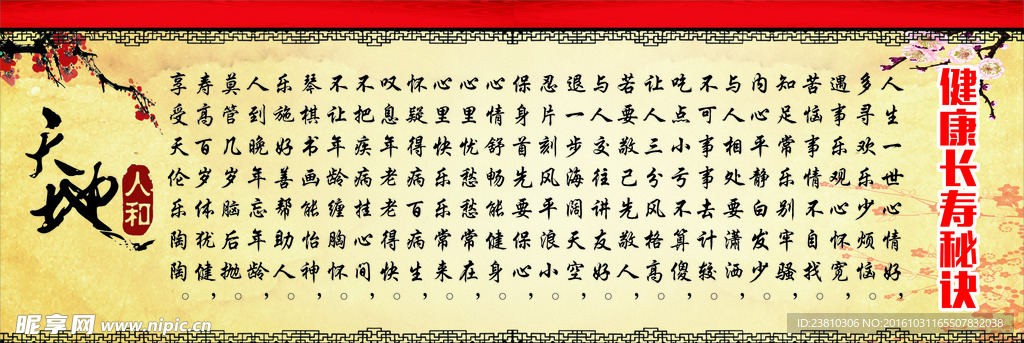 健康长寿秘诀
人生一世心情好，
多寻欢乐少烦恼。
遇事乐观心怀宽，
苦恼事情不自找。
知足常乐别牢骚，
内心平静白发少。
与人相处要潇洒，
不可事事去计较。
吃点小亏不算傻，
让人三分风格高。
若要敬己先敬人，
与人交往讲友好。
退一步海阔天空，
忍片刻风平浪小。
保身首先要保心，
心情舒畅能健身。
心里忧愁愁常在，
心里快乐乐常来。
怀疑得病百病生，
叹息年老老得快。
不把疾病挂心间，
不让年龄缠胸怀。
琴棋书画能怡神，
乐施好善帮助人。
人到晚年忘年龄，
莫管几岁脑后抛。
寿高百岁体犹健，
享受天伦乐陶陶。
天地
人和
昵享网 www.nipic.cn
ID:23810306 NO:20161031165507832038